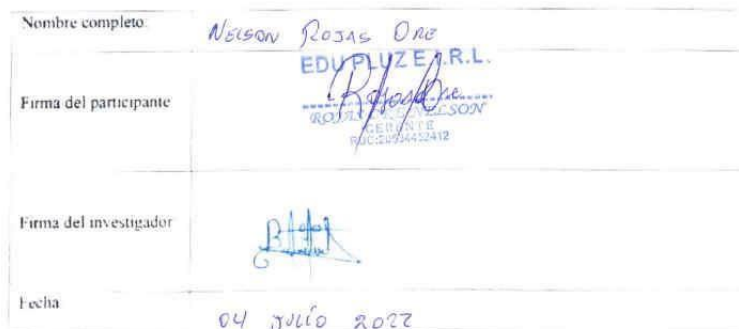 Nombre completo:
NELSON ROJAS ORE
EDU PLUZ E.I.R.L.
Firma del participante
Rojas Ore
ROJAS ORE NELSON
GERENTE
Firma del investigador
Fecha
04 JULIO 2022